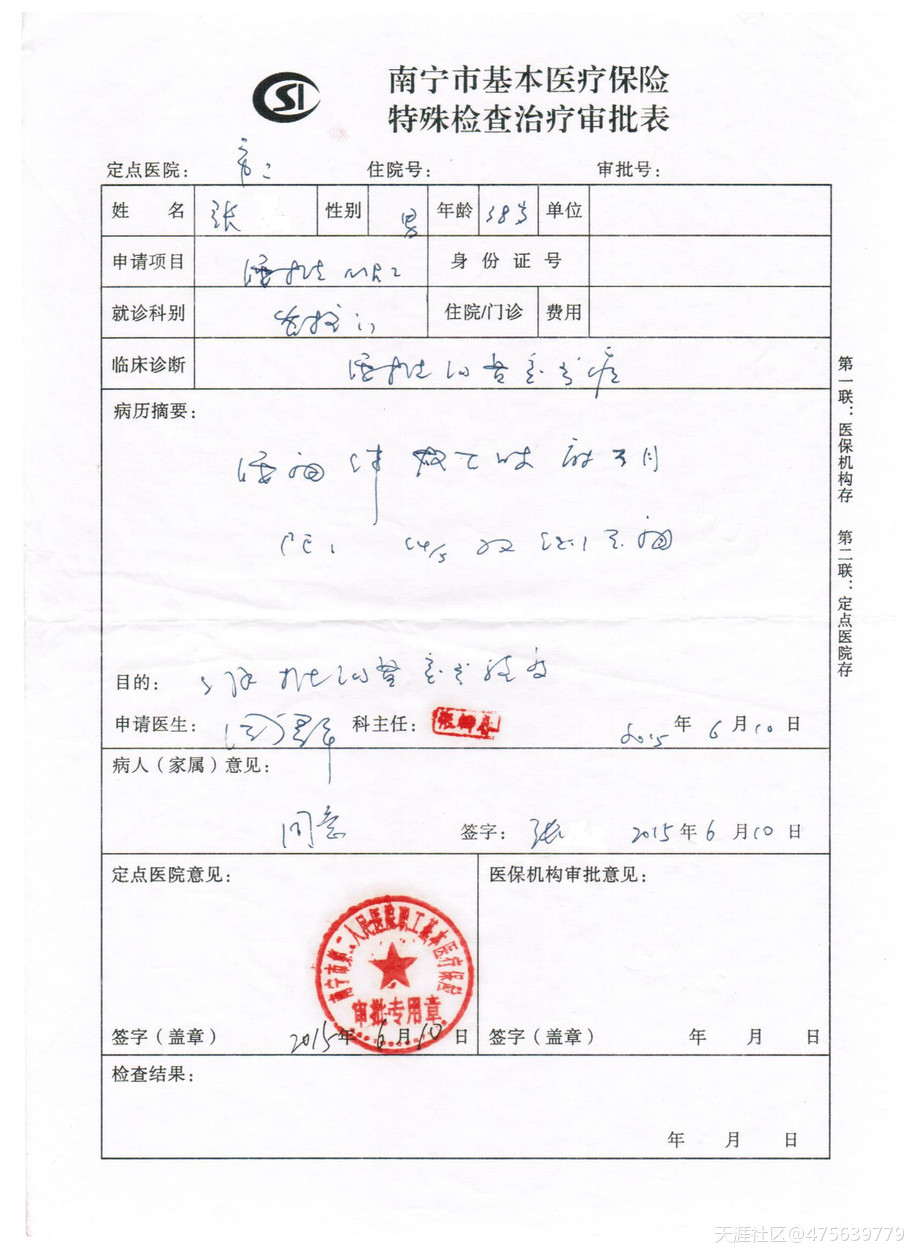 SI
南宁市基本医疗保险
特殊检查治疗审批表
定点医院： 市二 住院号： 审批号：
姓 名 张 性别 男 年龄 38岁 单位
申请项目 腰椎MRI 身份证号
就诊科别 脊椎门 住院/门诊 费用
临床诊断 腰椎间盘突出症
病历摘要：
腰痛伴
目的： 了解椎间盘突出程度
申请医生： 科主任：
2015年6月10日
病人（家属）意见：
同意 签字： 张 2015年6月10日
定点医院意见： 医保机构审批意见：
南宁市第二人民医院职工基本医疗保险
审批专用章
签字（盖章） 2015年6月10日 签字（盖章） 年 月 日
检查结果：
年 月 日
第一联：医保机构存 第二联：定点医院存
天涯社区@475639779